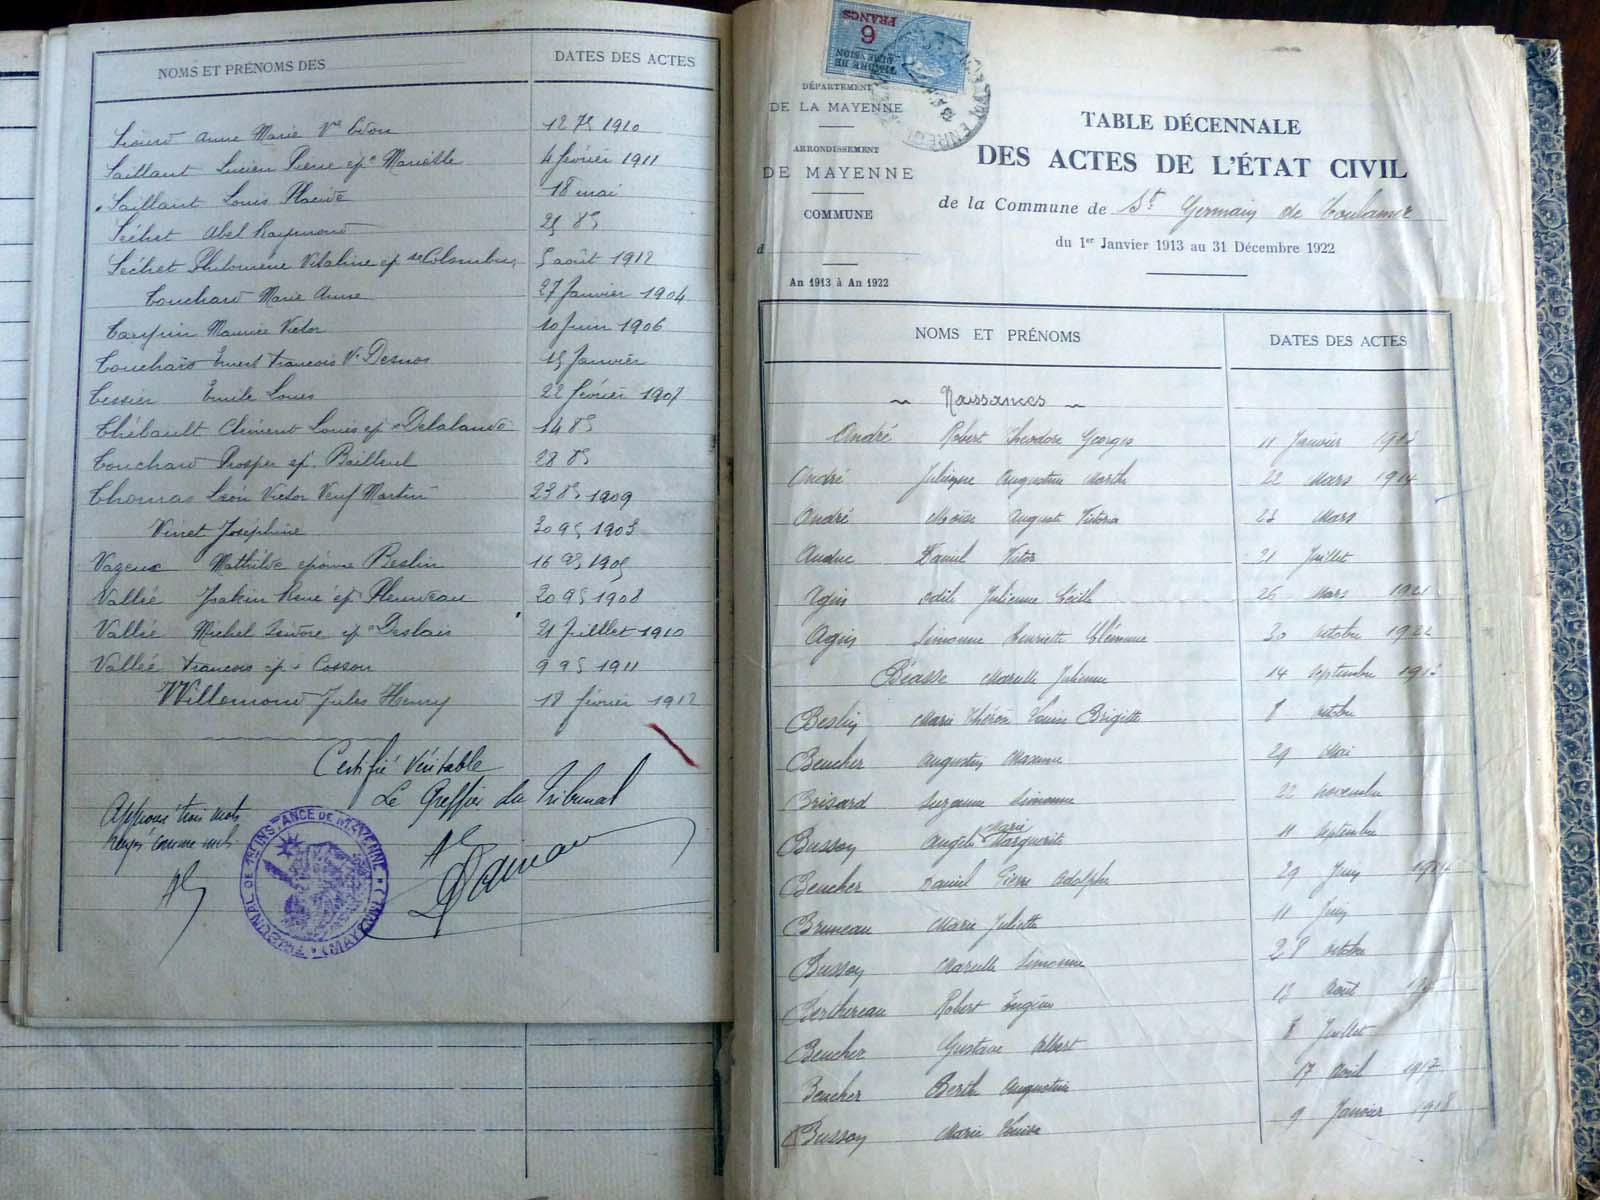 NOMS ET PRÉNOMS DES
DATES DES ACTES
Anne Marie Vve 12 7e 1910
Saillant Lucien Pierre epx Mariette 4 février 1911
Saillant Louis Placide 18 mai
Séchet Abel Raymond 25 8e
Séchet Philomène Vitaline ep se Colombu 5 août 1912
Touchard Marie Anne 27 Janvier 1904
Maurice Victor 10 Juin 1906
Touchard Ernest François Vf Desnos 15 Janvier
Tessier Émile Louis 22 février 1907
Thébault Clément Louis ep x Delalande 14 8e
Touchard Prosper ep. Bailleul 28 8e
Thomas Léon Victor Veuf Martin 23 8e 1909
Vinet Joséphine 30 9e 1903
Vazeux Mathilde épouse Beslin 16 9e 1905
Vallée René ep x 20 9e 1908
Vallée Michel Isidore ep x Deslais 21 Juillet 1910
Vallée François ep x Cosson 9 9e 1911
Willemond Jules Henry 18 février 1912
Certifié Véritable
Le Greffier du Tribunal
Approuvé trois mots
rayés comme nuls
TRIBUNAL DE 1RE INSTANCE DE MAYENNE (MAYENNE)
6 FRANCS
TIMBRE DE DIMENSION
DÉPARTEMENT
DE LA MAYENNE
ARRONDISSEMENT
DE MAYENNE
COMMUNE
d
An 1913 à An 1922
TABLE DÉCENNALE
DES ACTES DE L'ÉTAT CIVIL
de la Commune de St Germain de Coulamer
du 1er Janvier 1913 au 31 Décembre 1922
NOMS ET PRÉNOMS
DATES DES ACTES
~ Naissances ~
André Robert Théodore Georges 11 Janvier 1913
André Julienne Augustine Marthe 22 Mars 1914
André Moïse Auguste Victoria 23 Mars
Daniel Victor 21 Juillet
Odile Julienne Cécile 26 Mars 1921
Simonne Henriette Clémence 30 octobre 1922
Béasse Marcelle Julienne 14 septembre 1913
Beslin Marie Louise Brigitte 8 octobre
Beucher Augustin Maxime 29 Mai
Brisard Suzanne Simonne 22 novembre
Busson Angèle Marie Marguerite 11 septembre
Beucher Daniel Pierre Adolphe 29 Juin 1914
Bruneau Marie Juliette 11 Juin
Busson Marcelle Simonne 28 octobre
Berthereau Robert Eugène 12 Août
Beucher Gustave Albert 8 Juillet
Beucher Berthe Augustine 17 Avril 1917
Busson Marie Louise 9 Janvier 1918